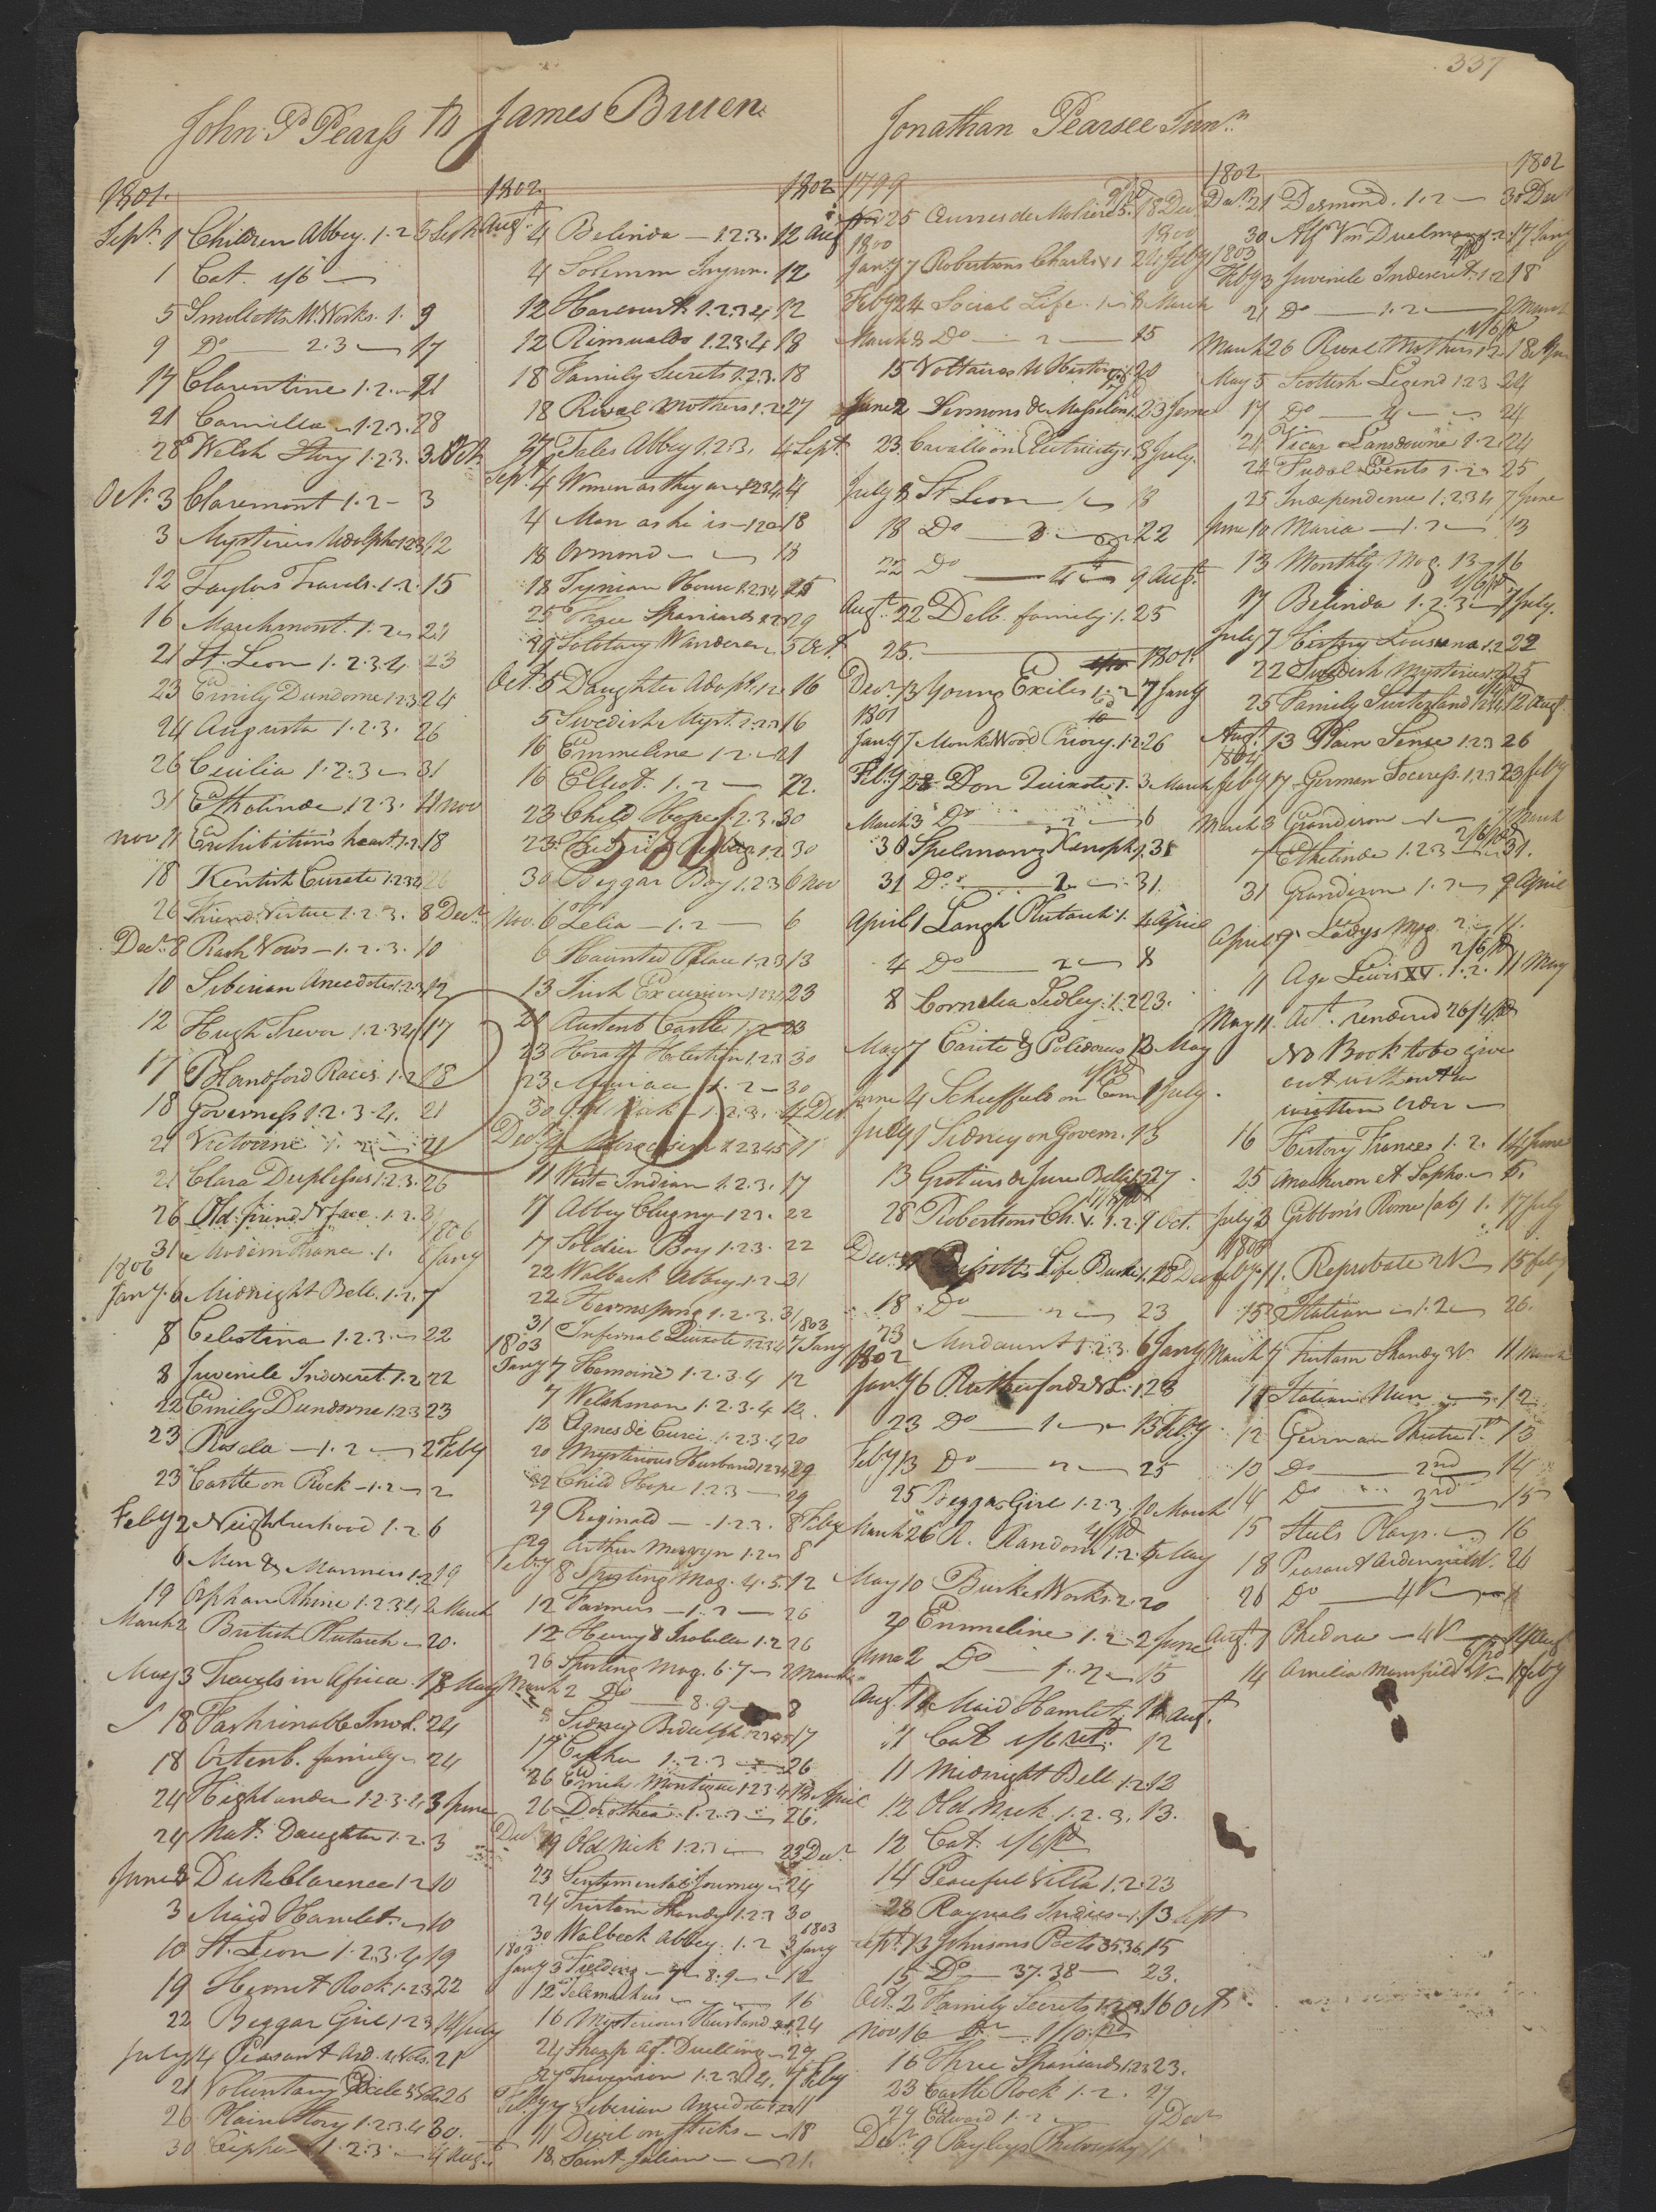 337
John P Pearss to James Bruen
1801.
Sept. 1 Children Abbey. 1.2 5 Sept
1 Cat. 1/6
5 Smolletts M. Works. 1. 9
9 Do 2.3 17
17 Clarentine 1.2. 21
21 Camilla 1.2.3. 28
28 Welsh Story 1.2.3. 3 Oct.
Oct. 3 Claremont 1.2 3
3 Mysteries Udolpho 1.2.3 12
12 Taylors Travels. 1.2. 15
16 Marchmont. 1.2 21
21 St. Leon 1.2.3.4. 23
23 Emily Dundorne 1.2.3 24
24 Augusta 1.2.3. 26
26 Cecilia 1.2.3 31
31 Ethelinde 1.2.3. 11 Nov
Nov 11 Exhibitions heart 1.2. 18
18 Kentish Curate 1.2.3.4 26
26 Friend Virtue 1.2.3. 8 Decr.
Decr. 8 Rash Vows 1.2.3. 10
10 Siberian Anecdotes 1.2.3 12
12 Hugh Trevor 1.2.3.4 17
17 Blandford Races. 1.2 18
18 Governess 1.2.3.4. 21
21 Victorine 1.2 21
21 Clara Duplessis 1.2.3. 26
26 Old friend N face. 1.2. 31
31 Modern France. 1. 1806 6 Jany
1806
Jany. 6 Midnight Bell. 1.2. 7
8 Celestina 1.2.3. 22
8 Juvenile Indiscret. 1.2 22
22 Emily Dundorne 1.2.3 23
23 Rosela 1.2 2 Feby
23 Castle on Rock 1.2 2
Feby 2 Neighbourhood 1.2 6
6 Men & Manners 1.2 19
19 Orphan Rhine 1.2.3.4 2 March
March 2 British Plutarch 20.
May 3 Travels in Africa. 18 May
18 Fashionable Invol. 24
18 Ortenb. family 24
24 Highlander 1.2.3.4 3 June
24 Nat. Daughter 1.2. 3
June 3 Duke Clarence 1.2 10
3 Maid Hamlet. 10
10 St. Leon 1.2.3.4 19
19 Hermit Rock 1.2.3 22
22 Beggar Girl 1.2.3 14 July
July 14 Peasant Ard. 4 Vols. 21
21 Voluntary Exile 5 26
26 Plain Story 1.2.3.4 30.
30 Cipher 1.2.3 4 Aug.
1802 1802
Augt. 4 Belinda 1.2.3. 12 Aug
4 Solemn Injun. 12
12 Harcourt 1.2.3.4 12
12 Rimualdo 1.2.3.4 18
18 Family Secrets 1.2.3. 18
18 Rival Mothers 1.2 27
27 Tales Abbey 1.2.3. 4 Sept
Sept. 4 Women as they are 1.2.3.4 4
4 Man as he is 1.2 18
18 Ormond 18
18 Tynian House 1.2.3.4 25
25 Three Spaniards 1.2 29
29 Solotary Wanderer 5 Oct.
Oct. 5 Daughter Adopt. 1.2 16
5 Swedish Myst. 1.2.3 16
16 Emmeline 1.2. 21
16 Elliot. 1.2 22.
23 Child Hope 1.2.3. 30
23 1.2 30
30 Beggar Boy 1.2.3 6 Nov
Nov. 6 Lelia 1.2 6
6 Haunted Palace 1.2.3 13
13 Irish Excursion 1.2.3.4 23
21 Austenb Castle 1.2 23
23 Horatio Holstein 1.2.3 30
23 1.2 30
30 Old Nick 1.2.3. 4 Decr
Decr. 4 1.2.3.4.5 11
11 West Indian 1.2.3. 17
17 Abbey Clugny 1.2.3. 22
17 Soldier Boy 1.2.3. 22
22 Walbeck Abbey 1.2 31
22 Hermsprong 1.2.3. 31
31 Infernal Quixote 1.2.3.4 1803 7 Jany
1803
Jany 7 Hemoine 1.2.3.4 12
7 Welshman 1.2.3.4 12.
12 Agnes de Curci 1.2.3.4 20
20 Mysterious Husband 1.2.3.4 29
22 Child Hope 1.2.3 29
29 Reginald 1.2.3. 8 Feby
29 Arthur Mervyn 1.2 8
Feby 8 Sporting Mag. 4.5. 12
12 Farmers 1.2 26
12 Henry & Isabella 1.2 26
26 Sporting Mag. 6.7 2 March
March 2 Do 8.9 8
8 Sidney Bidulph 1.2.3.4.5 17
17 Cipher 1.2.3 26
26 Emily Montague 1.2.3.4 13 April
26 Dorothea 1.2.3 26.
Decr. 19 Old Nick 1.2.3 23 Decr
23 Sentimental Journey 24
24 Tristam Shandy 1.2.3 30
30 Walbeck Abbey. 1.2 1803 3 Jany
1803
Jany 3 Fielding 7 8.9 12
12 Telemachus 16
16 Mysterious Husband 24
24 Sharp agt. Duelling 29
29 Trevanion 1.2.3.4. 7 Feby
Feby 7 Siberian Anecdotes 1.2.3 11
11 Devil on Sticks 18
18 Saint Julian 21.
500
Jonathan Pearsee Junr.
1799
Nov 25 Œuvres de Moliere 5. 18 Decr.
1800 1800
Jany 7 Robertsons Charles V 1 24 Feby
Feby 24 Social Life. 1 8 March
March 8 Do 2 15
15 Voltaires U History 1. 20
June 2 Sermons de Massilon 1. 23 June
23. Cavallo on Electricity 1. 8 July.
July 8 St Leon 1 18
18 Do 3. 22
22 Do 4 9 Augt.
Augt. 22 Delb. family. 1. 25
25. 1801.
Decr. 13 Young Exiles 1.2 7 Jany
1801
Jany 7 Monk Wood Priory. 1.2 26
Feby 28 Don Quixote 1. 3 March
March 3 Do 2 6
30 Spelmans Xenoph. 1. 31
31 Do. 2. 31.
April 1 Langh Plutarch 1. 4 April
4 Do 2 8
8 Cornelia Sedley. 1.2 23.
May 7 Carite & Polidorus 13 May
June 4 Scheffuls on Com 1 July.
July 1 Sidney on Govern. 13
13 Grotius de Jure Bellis 27
28 Robertsons Ch. V. 1.2. 9 Oct.
Decr. Bissetts Life Burke 1. 18 Decr
18 Do 2 23
23 Mordaunt 1.2.3. 6 Jany
1802
Jany 6 Rutherfords N L. 1 23
23 Do 1 13 Feby
Feby 13 Do 2 25
25 Beggar Girl 1.2.3. 10 March
March 26 R. Random 1.2. 5 May
May 10 Burkes Works 2. 20
20 Emmeline 1.2 2 June
June 2 Do 1.2 15
Augt. 10 Maid Hamlet 11 Augt.
11 Cat 1/6 retd. 12
11 Midnight Bell 1.2 12
12 Old Nick 1.2.3. 13.
12 Cat. 1/6 pd
14 Peaceful Villa 1.2. 23
28 Raynals Indies 1. 13 Sept
Sept. 13 Johnsons Poets 35.36 15
15 Do 37.38 23.
Oct. 2 Family Secrets 1.2.3 16 Oct
Nov 16 1/10 pd
16 Three Spaniards 1.2.3 23.
23 Castle Rock 1.2. 29
29 Edward 1.2 9 Decr
Decr. 9 Payleys Philosophy 1
1802 1802
Decr. 21 Desmond. 1.2 30 Decr
30 Alf Von Duelman 1.2. 17 Jany
1803
Feby 3 Juvenile Indiscret. 1.2 18
21 Do 1.2 2 March
March 26 Rival Mothers 1.2 18 Apr
May 5 Scottish Legend 1.2.3 24
17 Do 4 24
21 Vicar Lansdowne 1.2. 24
24 Fudal Events 1.2 25
25 Independence 1.2.3.4 7 June
June 10 Maria 1.2 13
13 Monthly Mag. 13 16
17 Belinda 1.2.3 7 July.
July 7 History Louisiana 1.2 22
22 Swedish Mysteries 25
25 Family Switzland 1.2.3.4 12 Aug.
Augt. 13 Plain Sense 1.2.3 26
1804
Feby 17 German Soceress. 1.2.3 23 Feby
March 3 Grandison 1 7 March
7 Ethelinde 1.2.3 31.
31 Grandison 1.2 9 April
April 9 Ladys Mag. 2 11.
11 Age Lewis XV. 1.2. 11 May
May 11. Act. rendered 26/4 pd
No Book to be give
out without a
written order
16 History France 1.2. 14 June
25 Anacheron et Sapho 6.
July 2 Gibbon's Rome (ab) 1. 17 July
1805
Feby 11. Reprobate 2 V 15 Feby
15 Italian 1.2 26.
March 7 Tristam Shandy 3 V. 11 March
11 Italian Nun 12.
12 German Theatre 1st 13
13 Do 2nd 14
14 Do 3rd 15
15 Steels Plays. 16
18 Peasant Ardennield. 26
26 Do 4 V
Augt. 7 Phedora 4 V 14 Aug
14 Amelia Mansfield 4 V 1 Feby